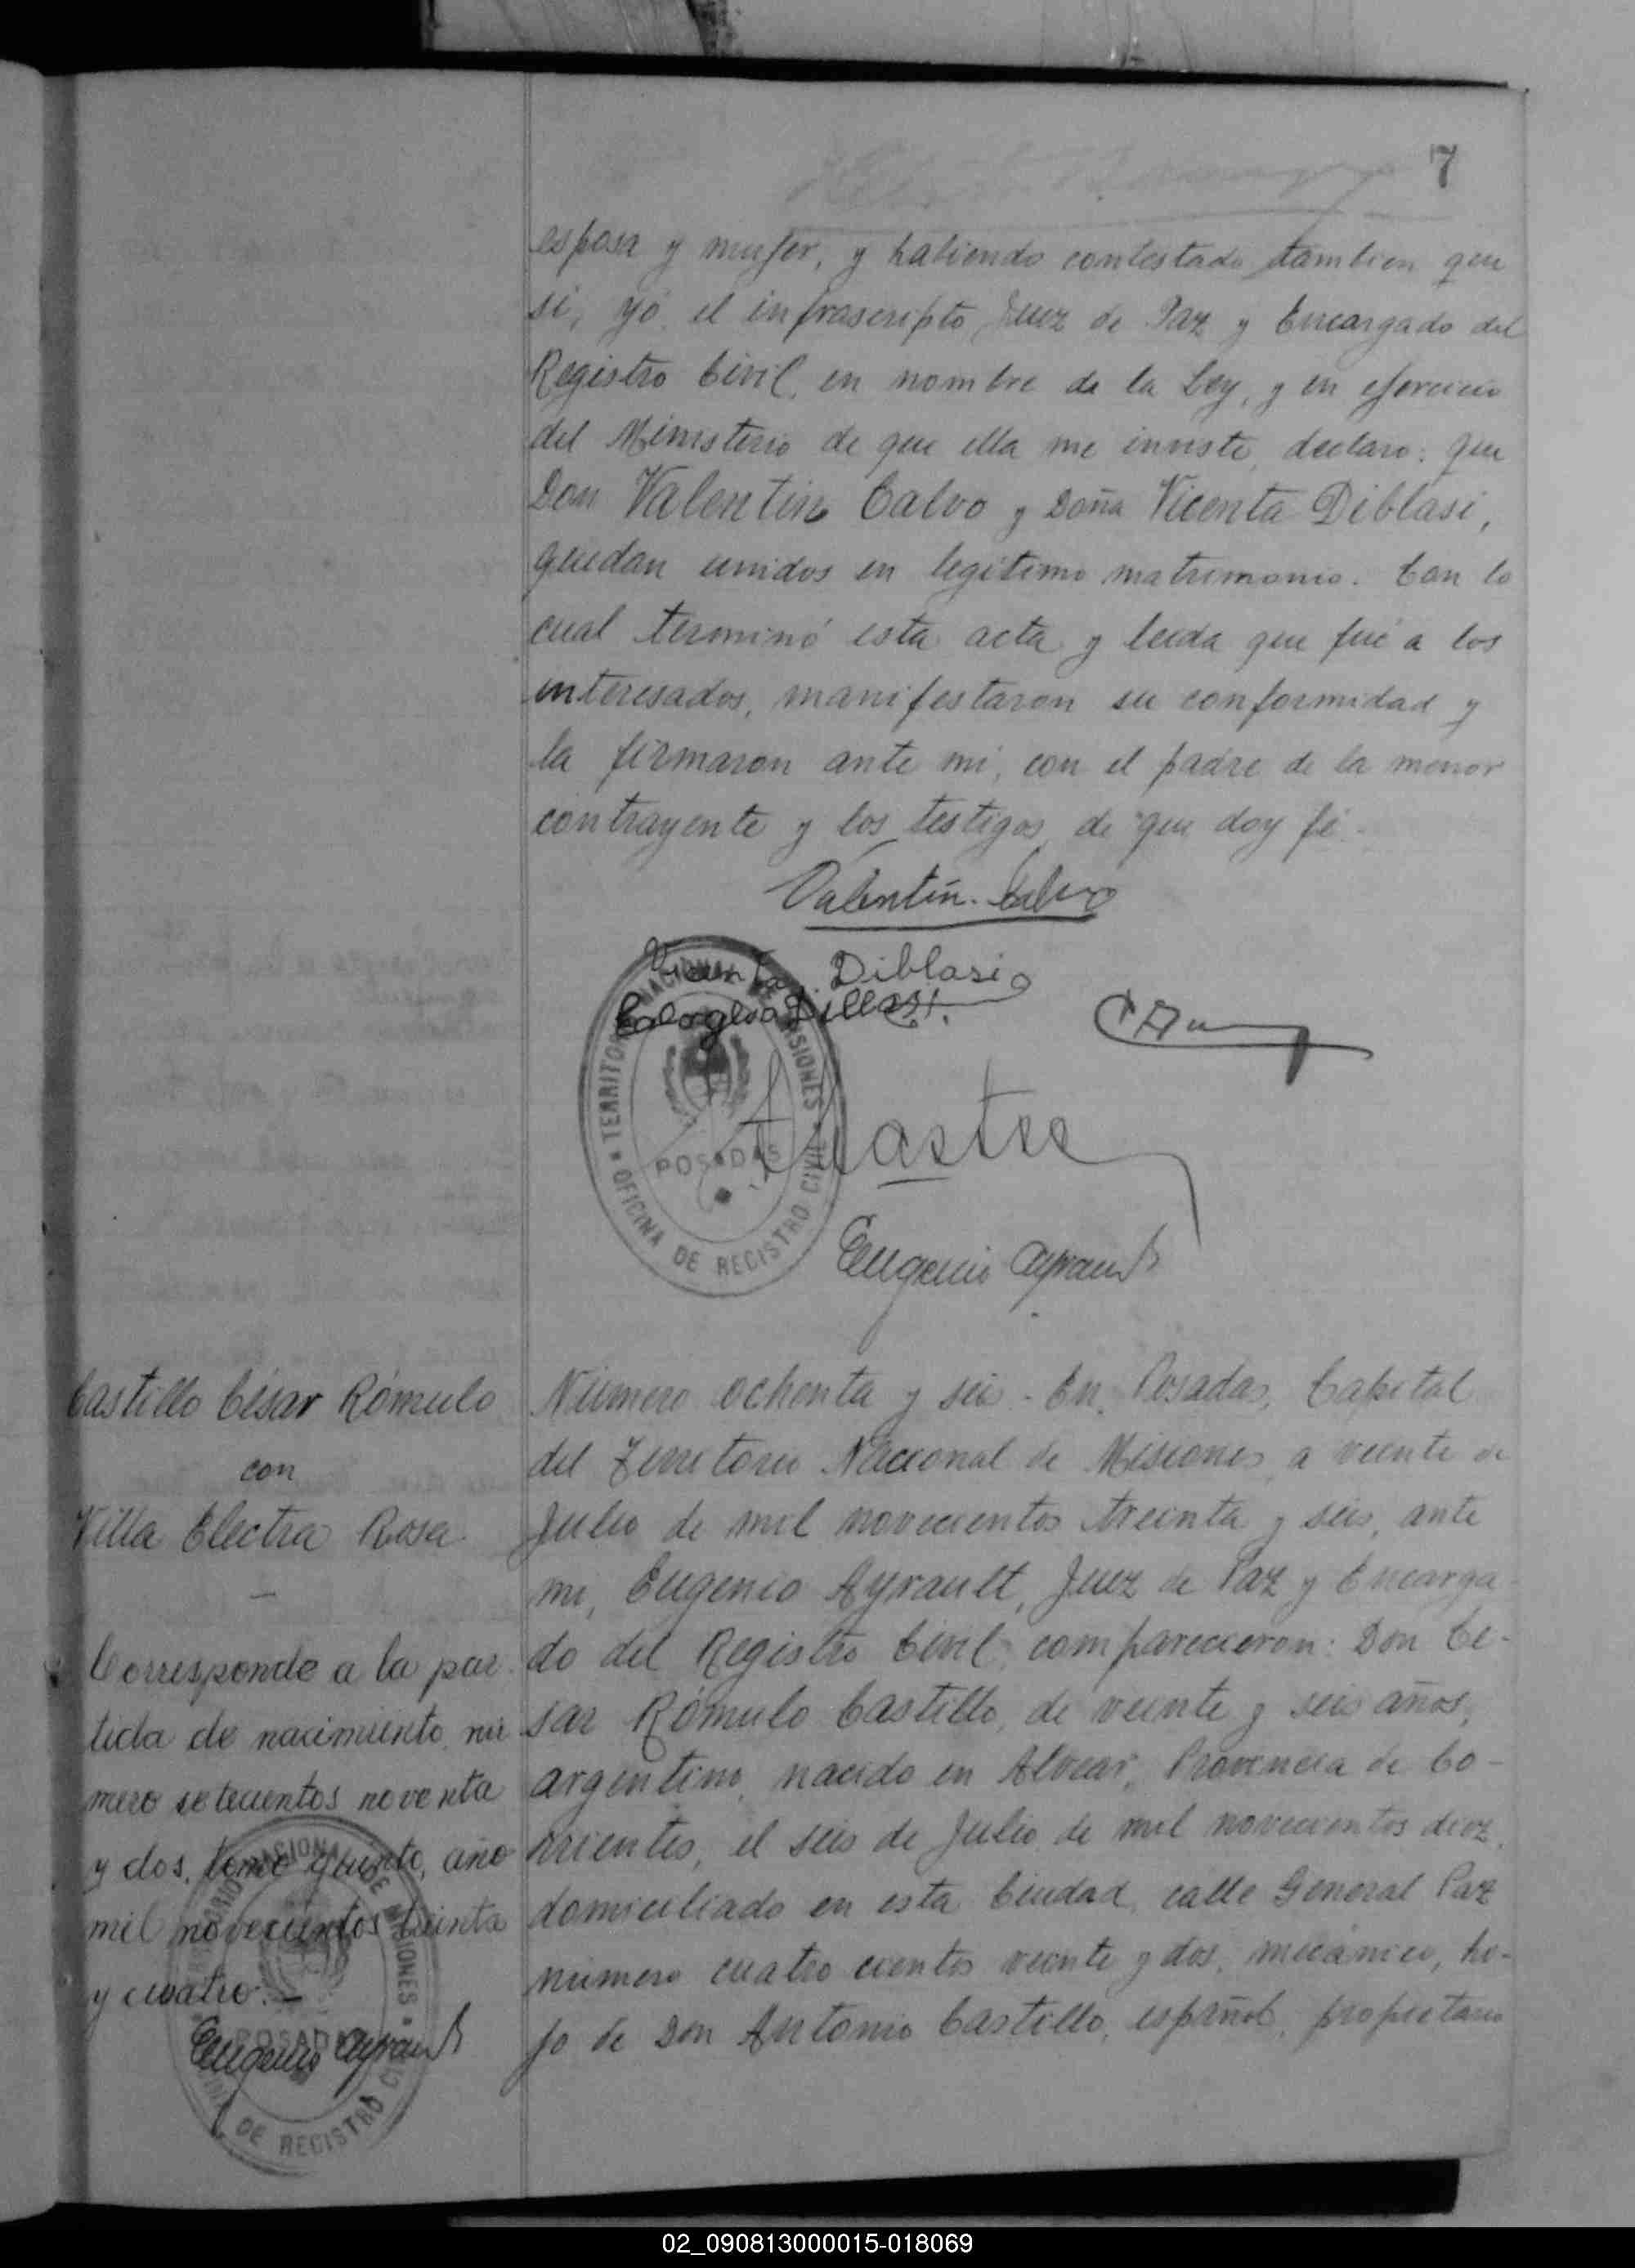 7
esposa y mujer, y habiendo contestado tambien que
si, yó el infrascripto Juez de Paz y Encargado del
Registro Civil, en nombre de la Ley, y en ejercicio
del Ministerio de que ella me inviste, declaro: que
Don Valentin Calvo y Doña Vicenta Diblasi,
quedan unidos en legitimo matrimonio. Con lo
cual terminó esta acta y leida que fué a los
interesados, manifestaron su conformidad y
la firmaron ante mi, con el padre de la menor
contrayente y los testigos, de que doy fé.
Valentín Calvo
Vicenta Diblasi
TERRITORIO NACIONAL DE MISIONES
POSADAS
OFICINA DE REGISTRO CIVIL
Eugenio Ayrault
Castillo César Rómulo
con
Villa Electra Rosa
Corresponde a la par
tida de nacimiento nú
mero setecientos noventa
y dos, tomo quinto, año
mil novecientos treinta
y cuatro.—
Eugenio Ayrault
POSADAS
DE REGISTRO
Número ochenta y seis - En Posadas, Capital
del Territorio Nacional de Misiones, a veinte de
Julio de mil novecientos treinta y seis, ante
mi, Eugenio Ayrault, Juez de Paz y Encarga-
do del Registro Civil, comparecieron: Don Cé-
sar Rómulo Castillo, de veinte y seis años,
argentino, nacido en Alvear, Provincia de Co-
rrientes, el seis de Julio de mil novecientos diez,
domiciliado en esta Ciudad, calle General Paz
número cuatro cientos veinte y dos, mecánico, hi-
jo de Don Antonio Castillo, español, propietario
02_090813000015-018069